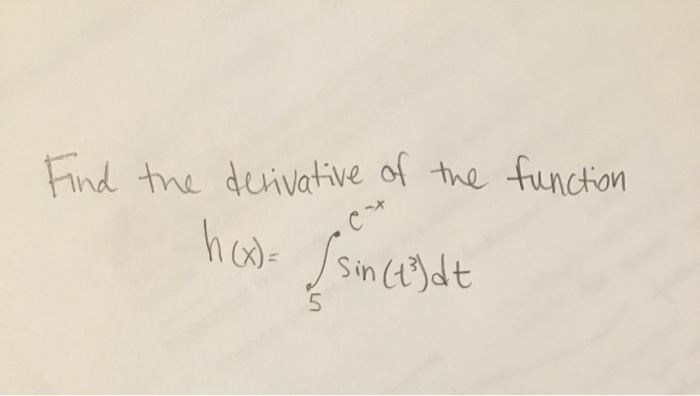 Find the derivative of the function
h(x)= ∫₅^(e^(-x)) sin(t³)dt